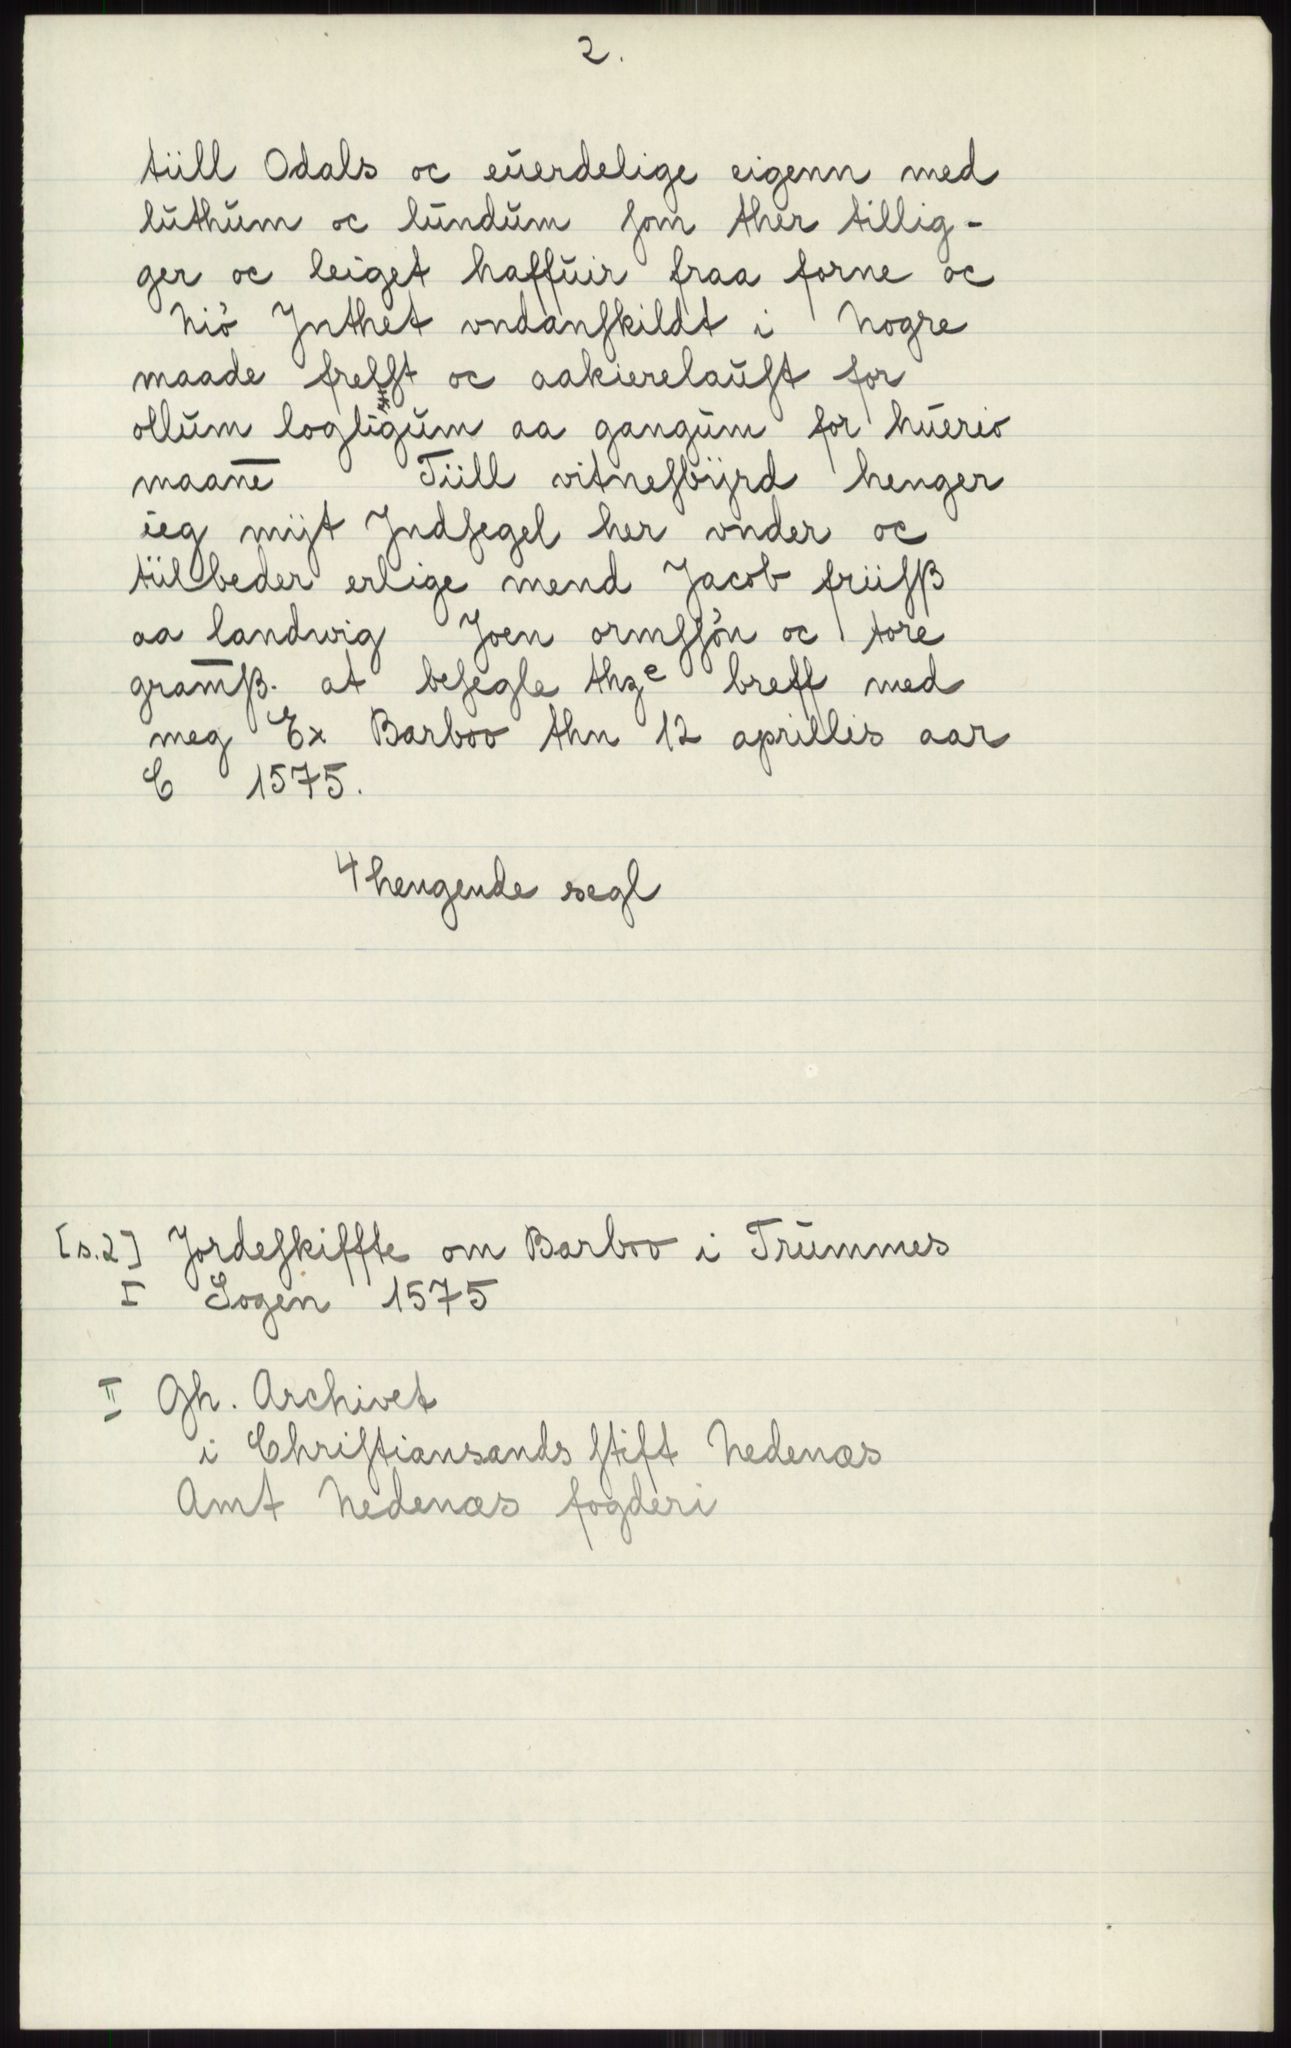 2.
tiill Odals oc eŭerdelige eigenn med
lŭthŭm oc lŭndŭm ſom ther tillig-
ger oc leiget haffŭir fraa forne oc
Niö Jnthet vndanſkildt i Nogre
maade frelſt oc aakierelaŭſt for
ollŭm logligŭm aa gangŭm for hŭerio
maan̅e̅ Tiill vitneſbÿrd henger
ieg mijt Jndſegel her vnder oc
tiilbeder erlige mend Jacob friiſß
aa landvig Joen ormſſön oc tore
gram̅ß. at beſegle thzᵉ breff med
meg Ex Barboo thn 12 aprillis aar
C 1575.
4 hengende segl
[s.2] Jordeſkiffte om Barboo i Trŭmmes
I Sogen 1575
II Gh. Archivet
i Chriſtiansands ſtift Nedenæs
Amt Nedenæs fogderi